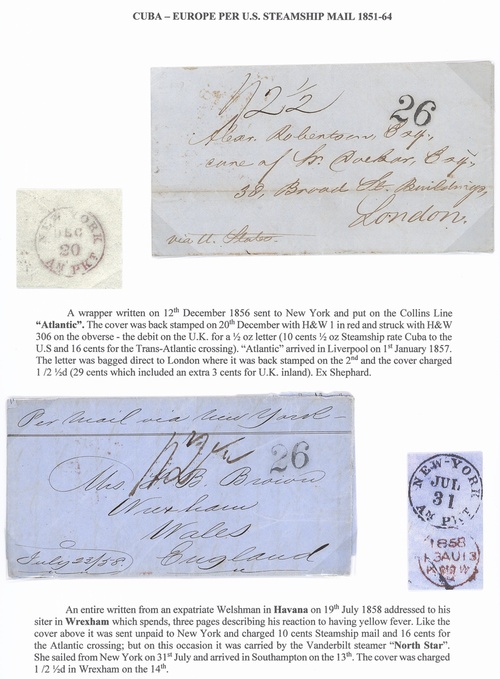 CUBA – EUROPE PER U.S. STEAMSHIP MAIL 1851-64
1/2 ½
26
Alexr. Robertson, Esq,
care of
Esq,
38, Broad St. Buildings,
London.
via U. States.
NEW-YORK
DEC
20
AM PKT
A wrapper written on 12th December 1856 sent to New York and put on the Collins Line
"Atlantic". The cover was back stamped on 20th December with H&W 1 in red and struck with H&W
306 on the obverse - the debit on the U.K. for a ½ oz letter (10 cents ½ oz Steamship rate Cuba to the
U.S and 16 cents for the Trans-Atlantic crossing). "Atlantic" arrived in Liverpool on 1st January 1857.
The letter was bagged direct to London where it was back stamped on the 2nd and the cover charged
1 /2 ½d (29 cents which included an extra 3 cents for U.K. inland). Ex Shephard.
Per Mail via New York
26
Mrs B. Brown
Wrexham
Wales
England
July 23/58
NEW-YORK
JUL
31
AM PKT
1858
13AU13
An entire written from an expatriate Welshman in Havana on 19th July 1858 addressed to his
siter in Wrexham which spends, three pages describing his reaction to having yellow fever. Like
the cover above it was sent unpaid to New York and charged 10 cents Steamship mail and 16 cents for
the Atlantic crossing; but on this occasion it was carried by the Vanderbilt steamer "North Star".
She sailed from New York on 31st July and arrived in Southampton on the 13th. The cover was charged
1 /2 ½d in Wrexham on the 14th.